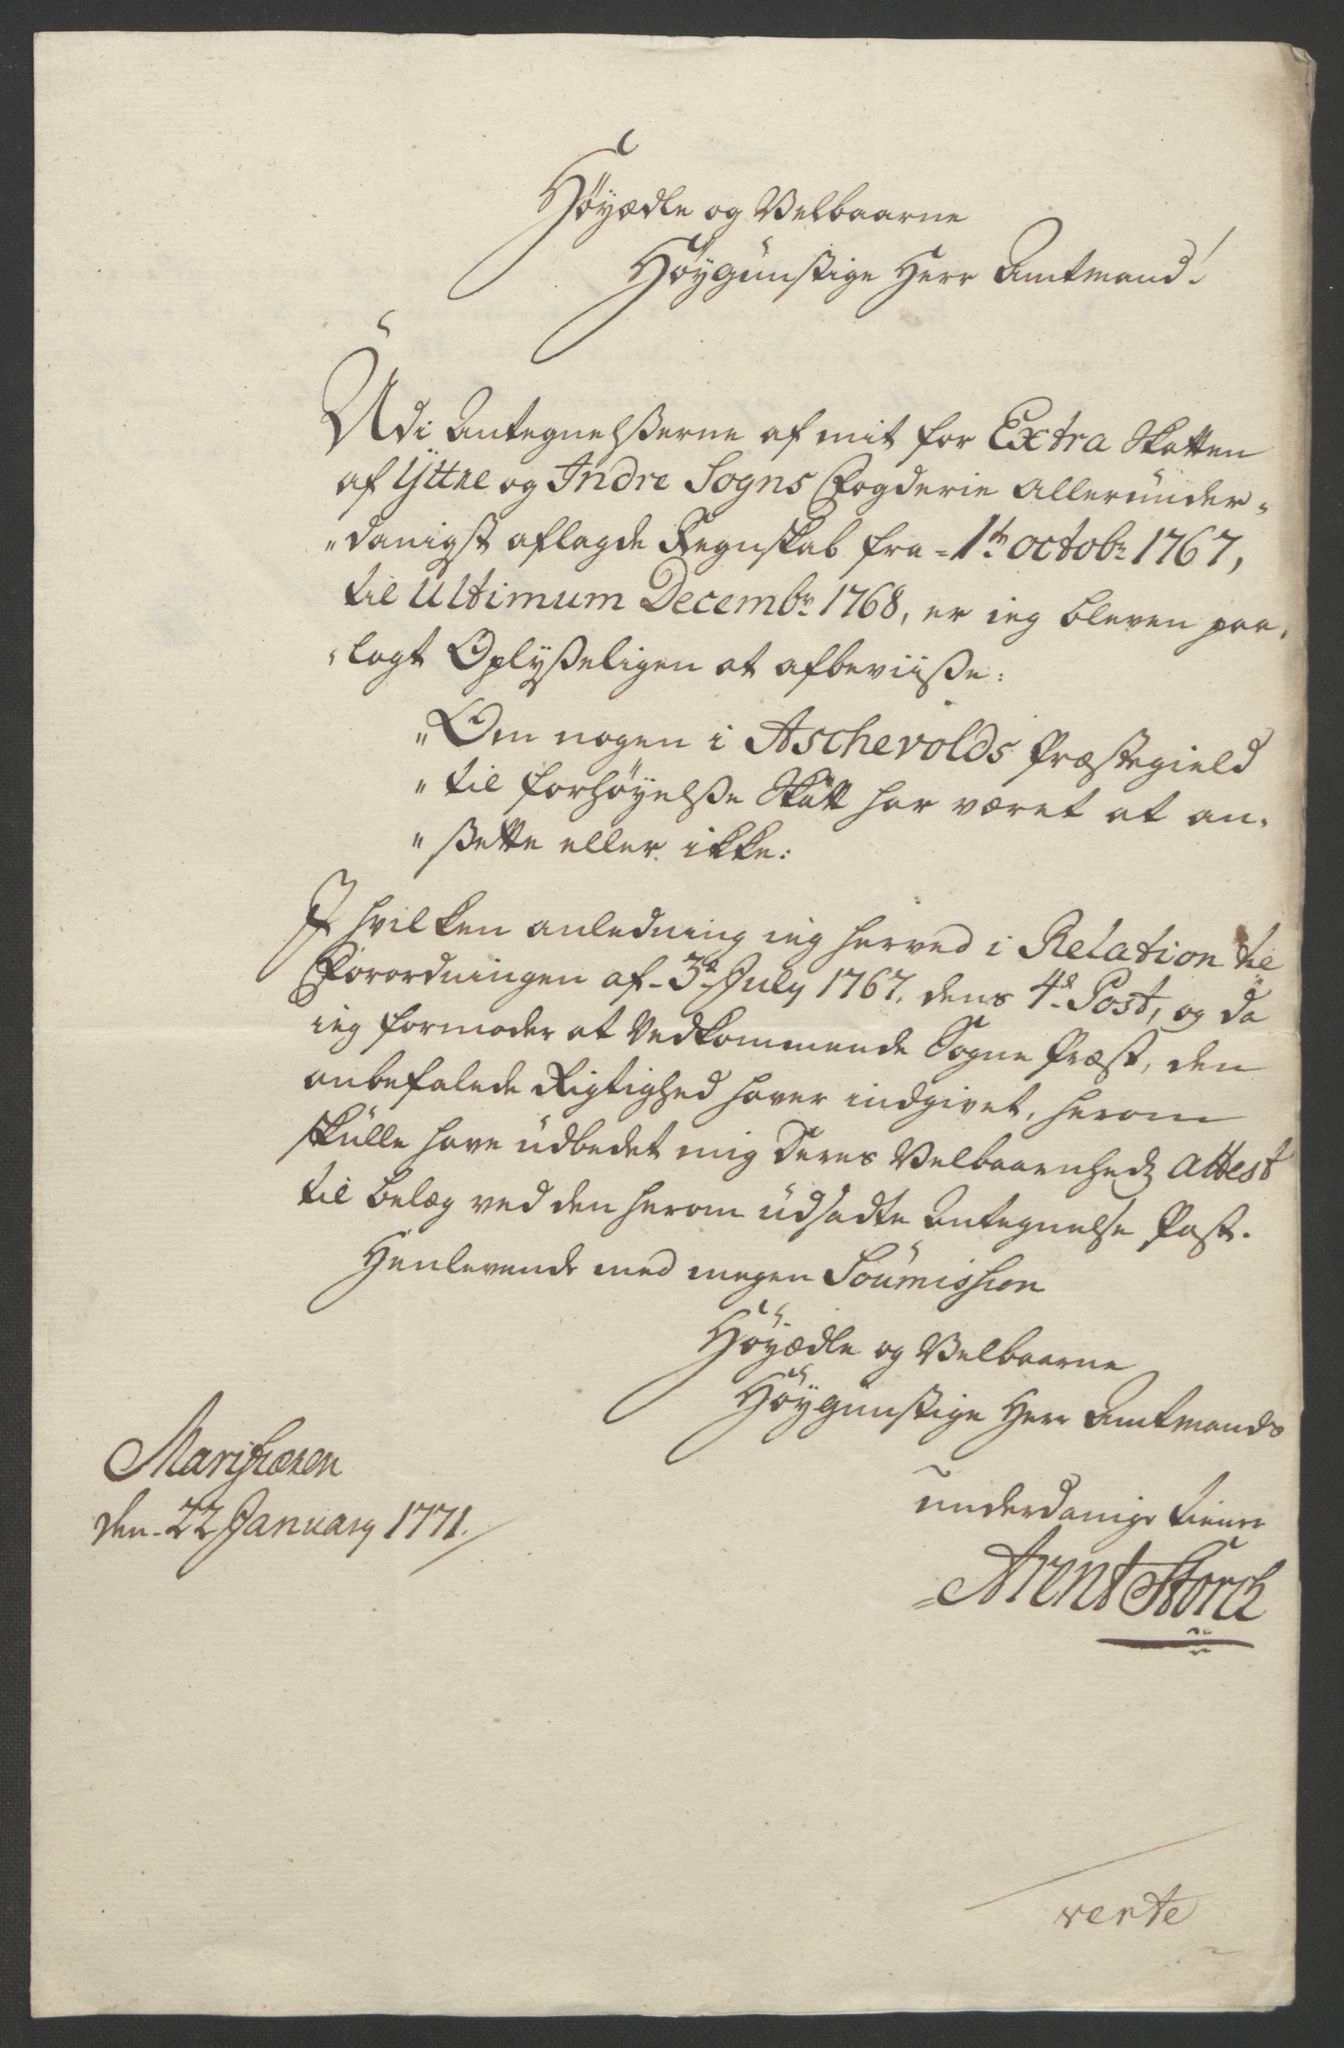 Höyædle og Velbaarne
Höygünstige Herr Amtmand!
Udi Antegnelßerne af mit for Extra Skatten
af Yttre og Indre Sogns Fogderie alleründer-
„danigst aflagde Regnskab fra 1te octobr 1767,
til Ultimum Decembr 1768, er ieg bleven paa,
„lagt Oplyßeligen at afbeviiße:
„Om nogen i Aschevolds Præstegield
„til forhöyelße Skatt har været at an,
„ßette eller ikke:
I hvilken anledning ieg herved i Relation til
Forordningen af 3de July 1767, dens 4de Post, og da
ieg formoder at Vedkommende Sogne Præst, den
anbefalede Rigtighed haver indgivet, herom
skülle have üdbedet mig Deres Velbaarenhedz attest
til belæg ved den herom üdsadte Antegnelse Post.
Henlevende med megen Soümission
Höyædle og Velbaarne
Höygünstige Herr Amtmands
ünderdanige tiener
Arent Storch
Marifiæren
den 22 January 1771.
verte